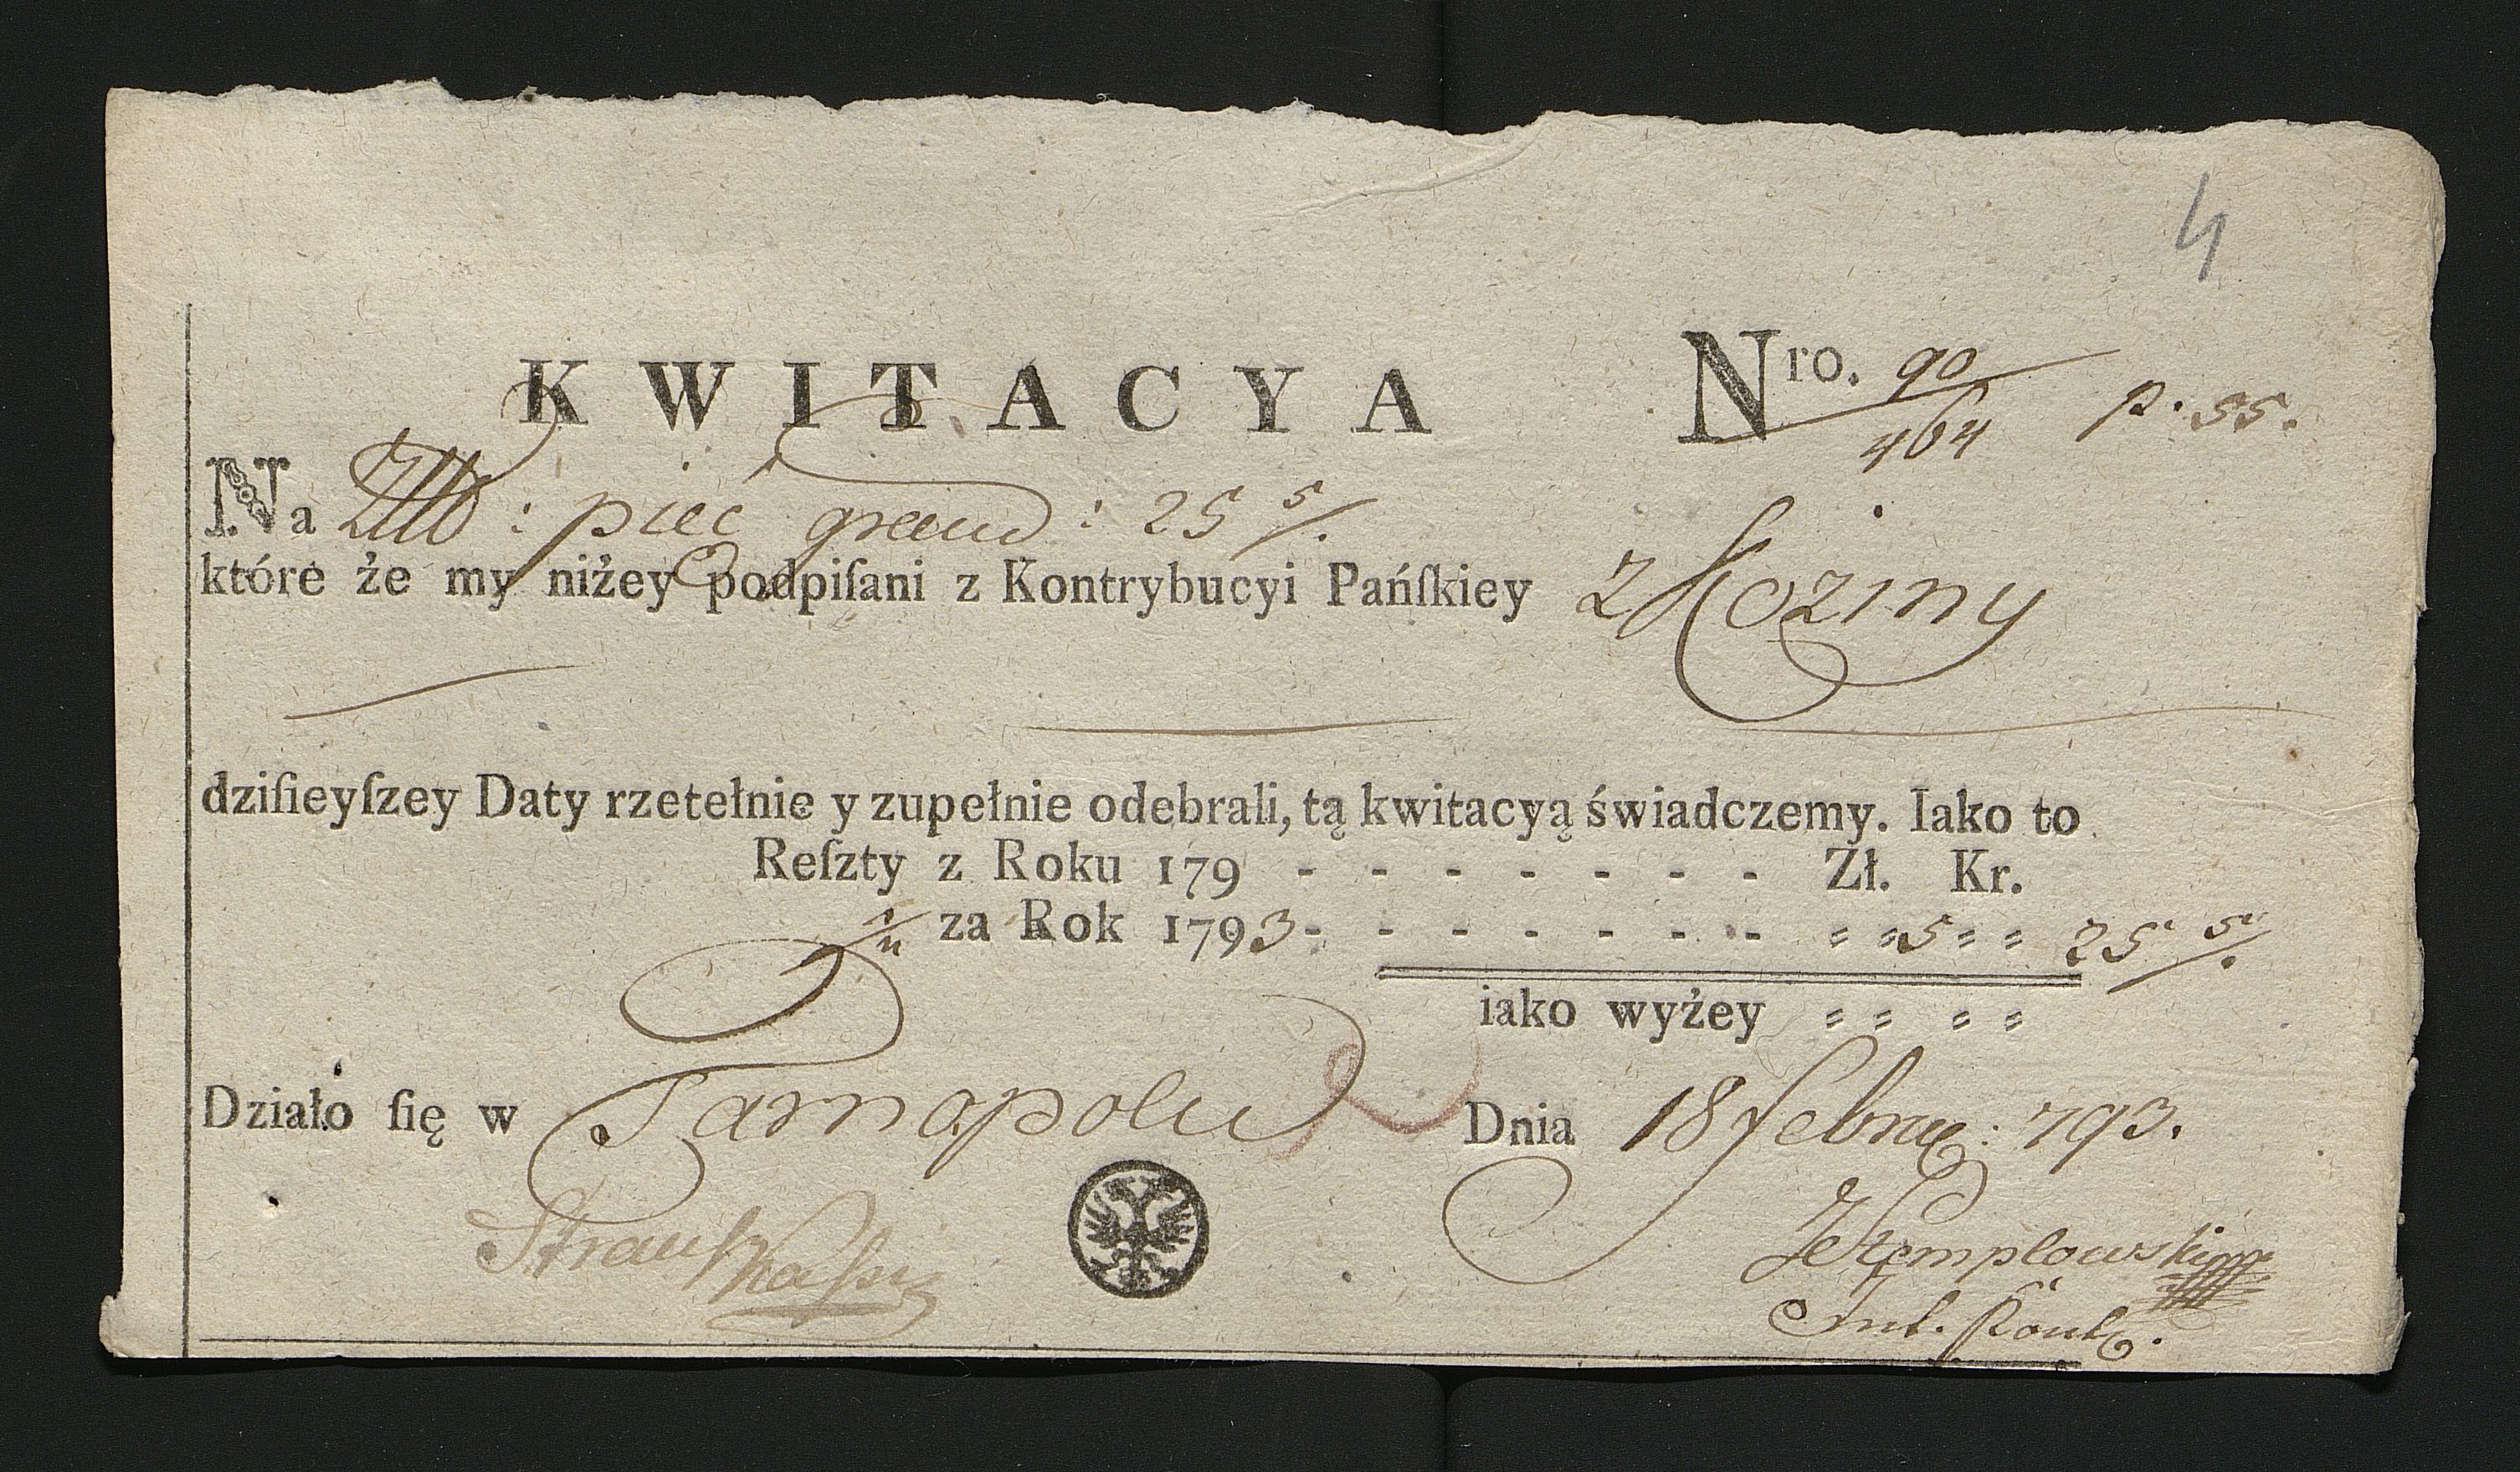 4
KWITACYA Nro. 90/464 p. 55.
Na : pięć : 25 5/.
które że my niżey podpiſani z Kontrybucyi Pańſkiey z Koziny
dziſieyſzey Daty rzetełnie y zupełnie odebrali, tą kwitacyą świadczemy. Iako to
Reſzty z Roku 179 - - - - - - - Zł. Kr.
za Rok 1793 - - - - - - - 5 25 5/.
iako wyżey
Działo ſię w Tarnopolu Dnia 18 Februa: 793.